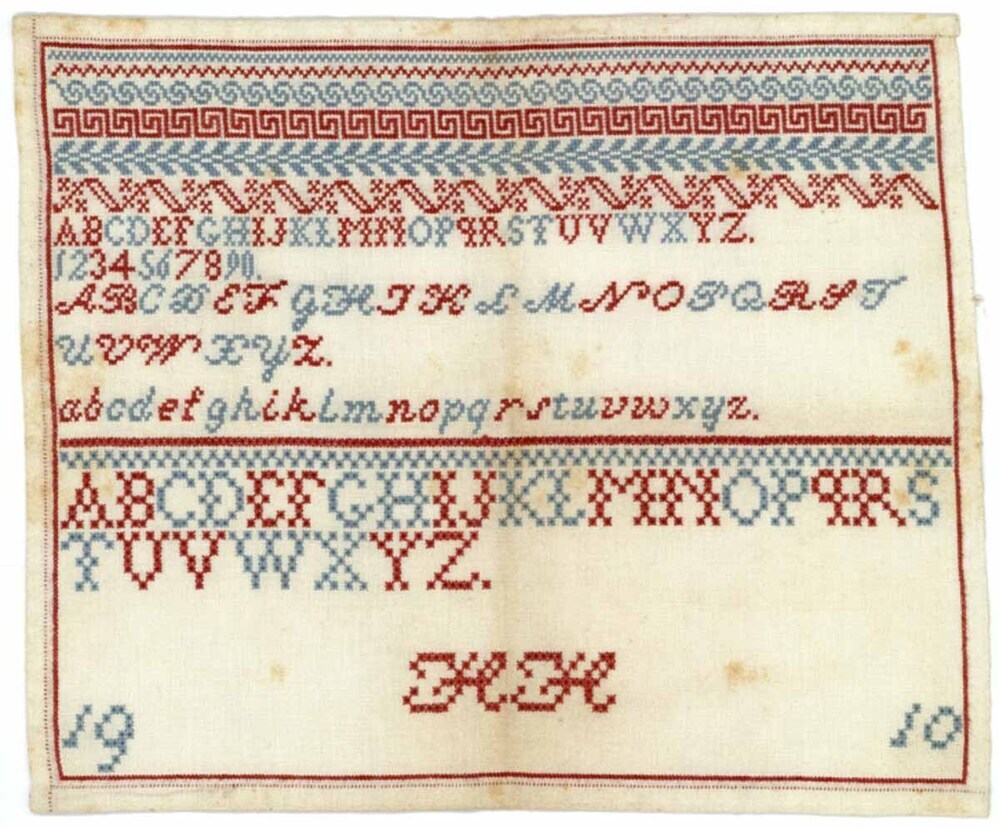 ABCDEFGHIJKLMNOPQRSTUVWXYZ.
1234567890.
ABCDEFGHIKLMNOPQRST
UVWXYZ.
abcdefghiklmnopqrstuvwxyz.
ABCDEFGHIJKLMNOPQRS
TUVWXYZ.
H.H
19 10